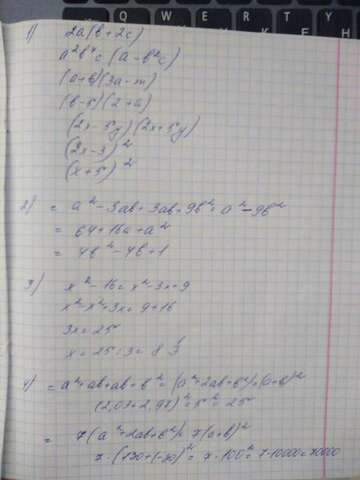 1) 2a(b+2c)
a²b⁴c (a-b²c)
(a+b)(3a-m)
(b-5)(2+a)
(2x-5y)(2x+5y)
(2x-3)²
(x+5)²
2) = a²-3ab+3ab-9b²=a²-9b²
= 64+16a+a²
= 4b²-4b+1
3) x²-16=x²-3x+9
x²-x²+3x=9+16
3x=25
x=25:3=8 ⅓
4) =a²+ab+ab+b²=(a²+2ab+b²)=(a+b)²
(2,03+2,97)²=5²=25
= 7(a²+2ab+b²)=7(a+b)²
7·(130+(-30))²=7·100²=7·10000=70000